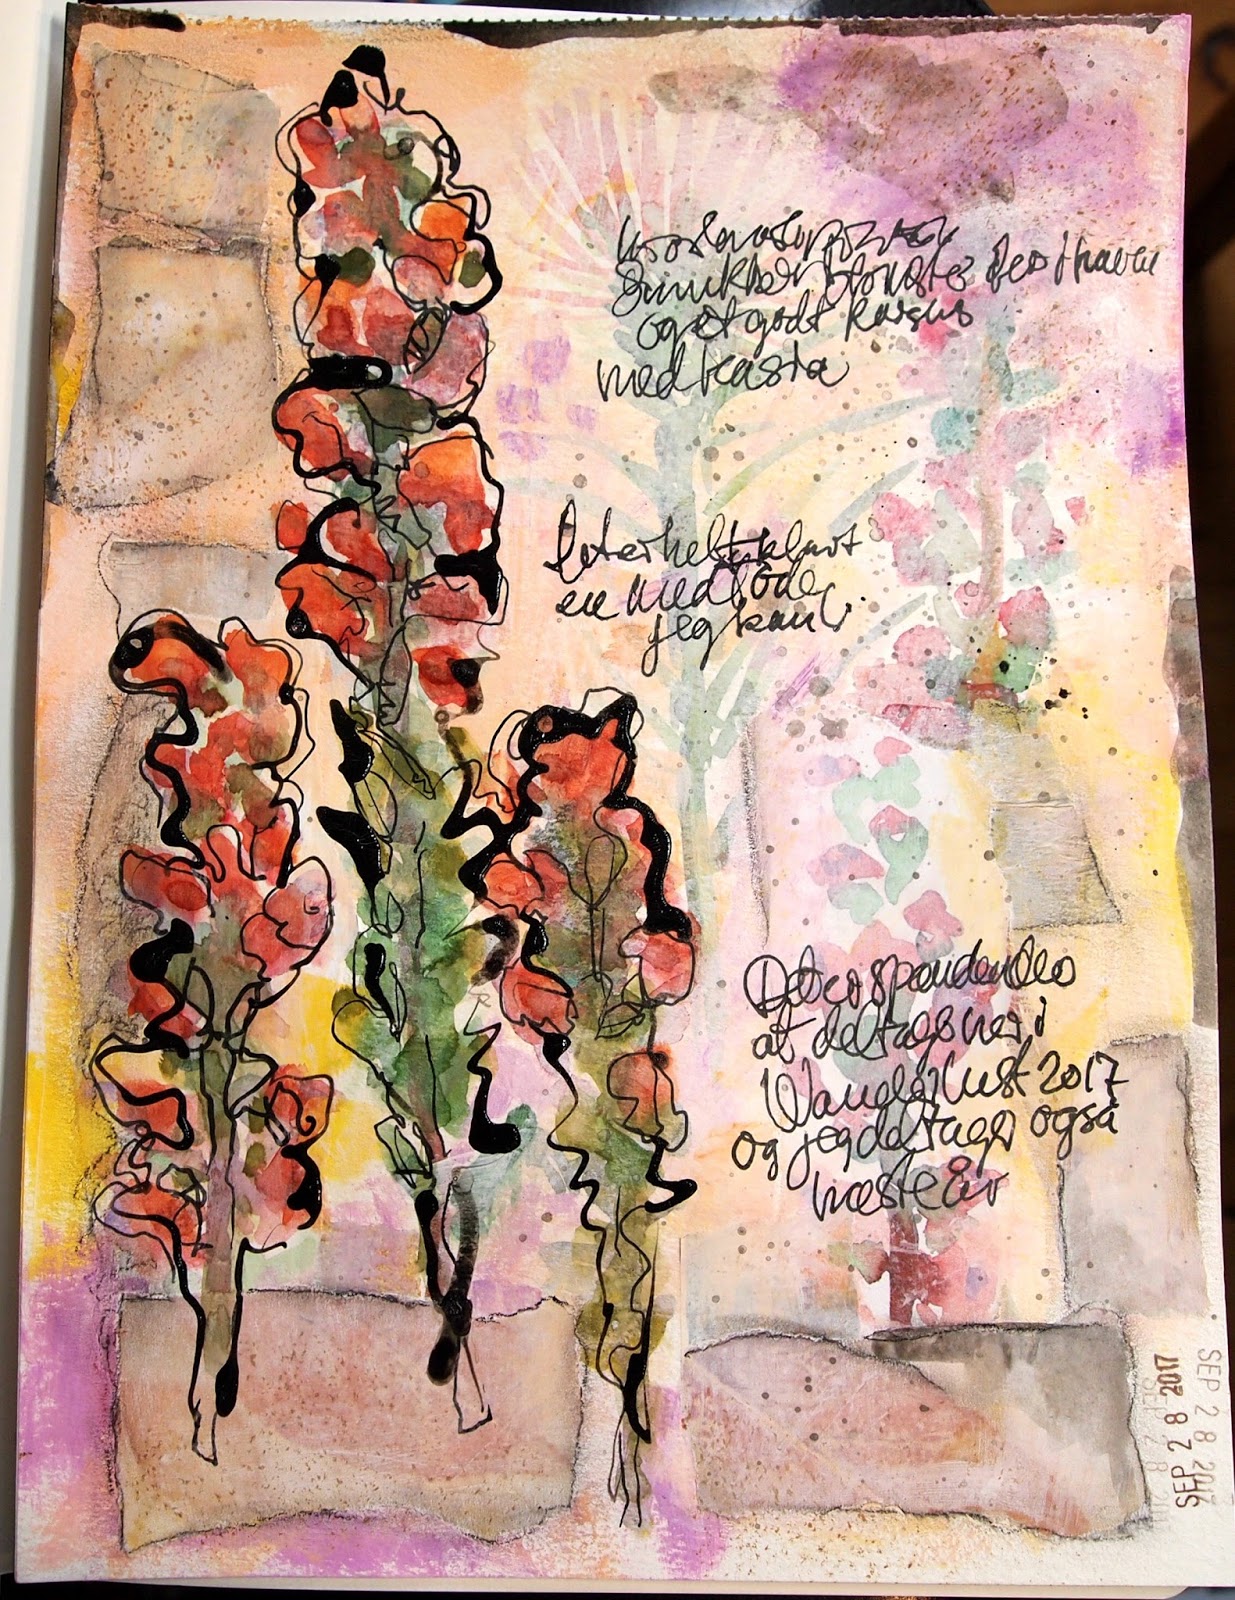 blomster fra haven
og et godt kursus
med Kasia
Det er helt klart
en metode
jeg kan li
Det er spændende
at deltage her i
Wanderlust 2017
og jeg deltager også
næste år
SEP 28 2017
SEP 28 2017